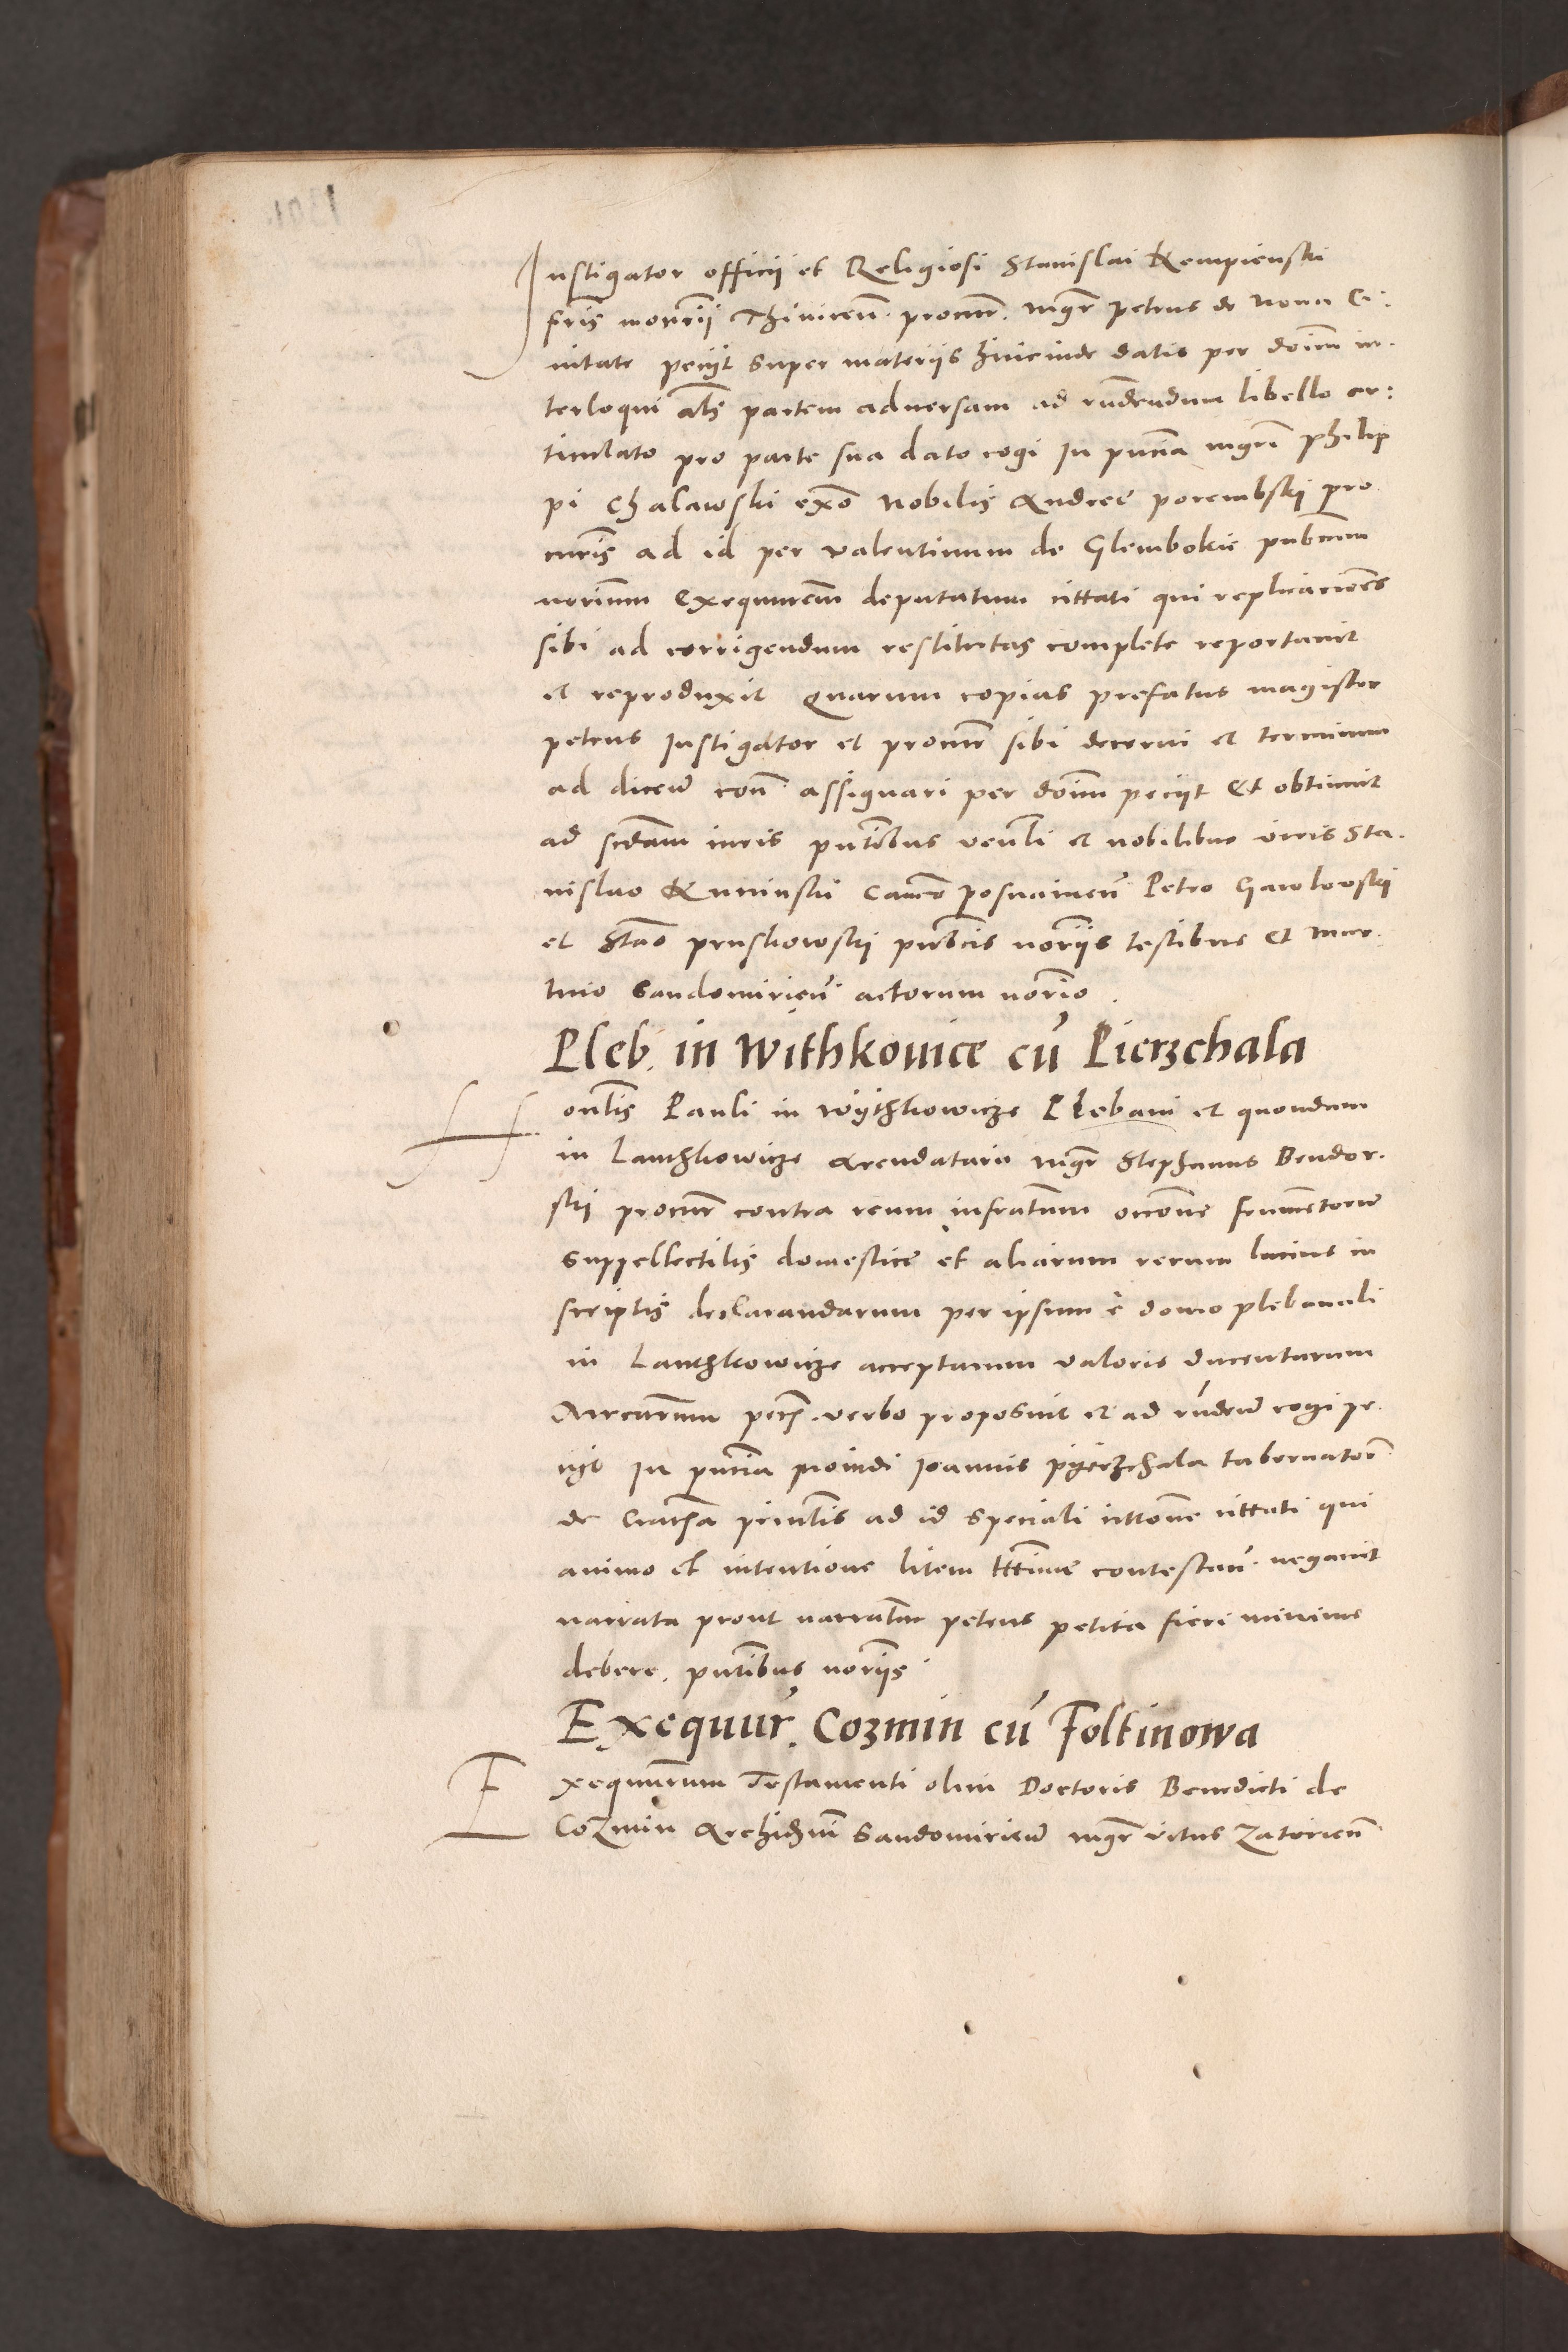 Instigator officii et Religiosi Stanislai Kempienski
fris monrii Thinicen. procur. mgr petrus de Nova Ci-
vitate peciit super materiis hincinde datis per dnm in-
terloqui als partem adversam ad rndendum libello ar:
ticulato pro parte sua dato cogi In pntia mgri Philip
pi Chalawski exo Nobilis Andree porembski pro
curis ad id per valentinum de Glembokie pubcum
norium Exequutem deputatum cittati qui replicacioes
sibi ad corrigendum restitutas complete reportavit
et reproduxit Quarum copias prefatus magister
petrus Instigator et procur sibi decerni et terminum
ad dicend con. assignari per dnm peciit Et obtinuit
ad scdam iuris pntibus venli et nobilibus viris Sta-
nislao Kuninski Canco posnanien Petro Gawlowskij
et Stao pruskowskij pubcis noriis testibus et mar
tino Sandomirien actorum norio.
Pleb. in Withkovice cu Pierzchala
Honlis Pauli in Wythkowicze Plebani et quondam
in Lanchkowicze Arendatarii mgr Stephanus Bendor-
ski procur contra reum infratum occone frumentorum
suppellectilis domestice et aliarum rerum lacius in
scriptis declarandarum per ipsum e domo plebanali
in Lanchkowicze acceptarum valoris ducentarum
Marcarum pecs. verbo proposuit et ad rndend cogi pe
ciit In pntia providi Joannis pyerzchala tabernatoris
de prinlis ad id speciali cittone cittati qui
animo et intentione litem ttime contestan. negavit
narrata prout narrantur petens petita fieri minime
debere. pntibus noriis
Exequur. Cozmin cu Foltinowa
Exequutorum Testamenti olim Doctoris Benedicti de
Cozmin Archidni Sandomirien mgr Vitus Zatorien